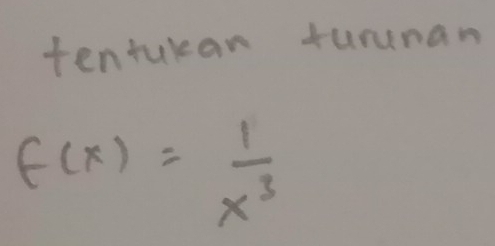 tentukan turunan
f(x) = 1/x³